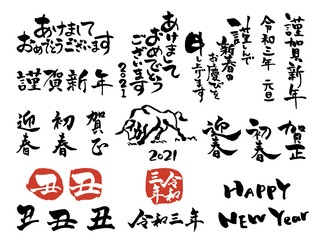 あけまして
おめでとうございます
謹賀新年
あけまして
おめでとう
ございます
2021
謹んで
新春の
お慶びを
申し上げます
令和三年 元旦
謹賀新年
迎春
初春
賀正
2021
迎春
初春
賀正
丑
丑
令和
三年
丑
丑
丑
令和三年
HAPPY
NEW Year